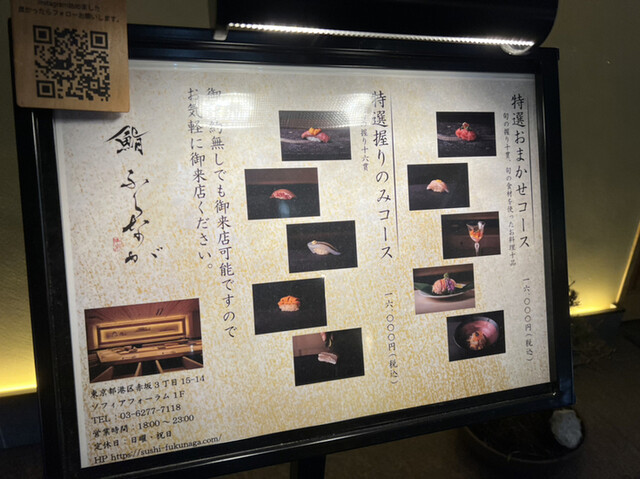 良かったらフォローお願いします。
特選おまかせコース
旬の握り十貫、旬の食材を使ったお料理十品
一六、〇〇〇円(税込)
特選握りのみコース
握り十六貫
一六、〇〇〇円(税込)
無しでも御来店可能ですので
お気軽に御来店ください。
鮨 ふくなが
東京都港区赤坂3丁目15-14
ソフィアフォーラム1F
TEL:03-6277-7118
営業時間:18:00~23:00
定休日:日曜・祝日
HP https://sushi-fukunaga.com/